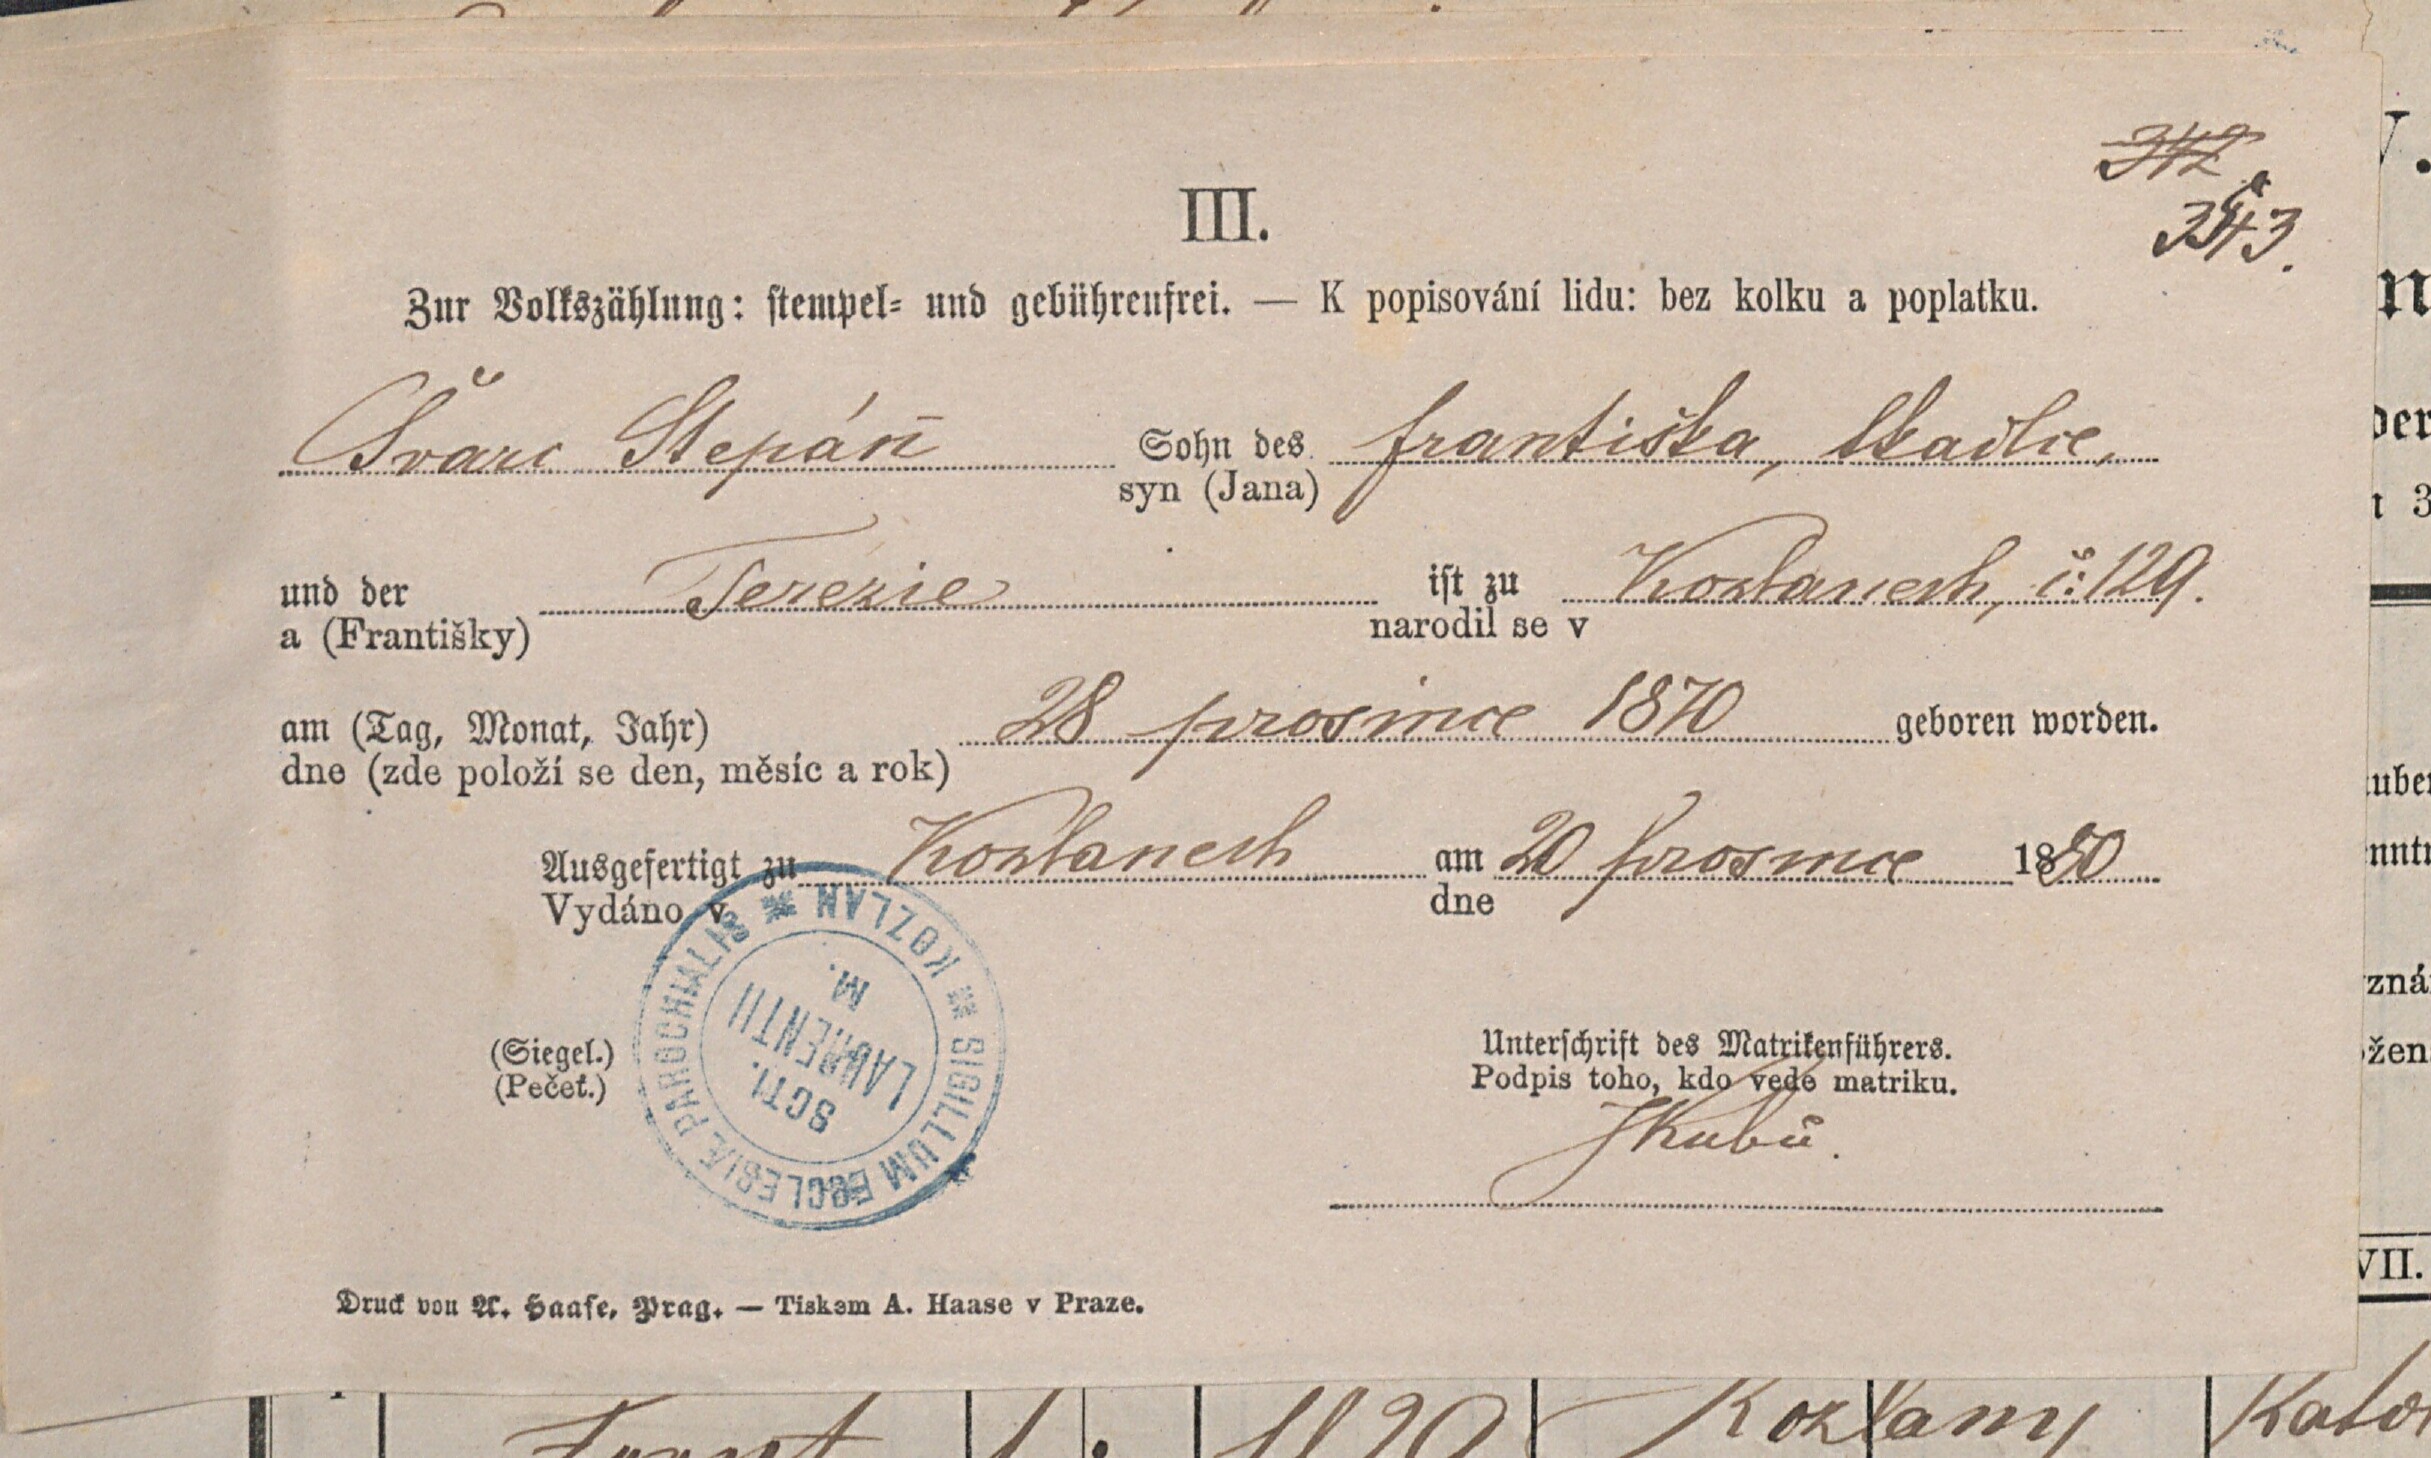 342
343.
III.
Zur Volkszählung: stempel- und gebührenfrei. — K popisování lidu: bez kolku a poplatku.
Švarc Stepáň Sohn des Františka, tkadlce,
syn (Jana)
und der Terezie ist zu Kozlanech, č: 129.
a (Františky) narodil se v
am (Tag, Monat, Jahr) 28 prosince 1870 geboren worden.
dne (zde položí se den, měsíc a rok)
Ausgefertigt zu Kozlanech am 20 prosince 1880
Vydáno v dne
SIGILLUM ECCLESIÆ PAROCHIALIS * KOZLAN *
SCTI.
LAURENTII
M.
(Siegel.)
(Pečeť.)
Unterschrift des Matrikenführers.
Podpis toho, kdo vede matriku.
JKubů.
Druck von A. Haase, Prag. — Tiskem A. Haase v Praze.
V.
n
der
3
VII.
1829 Kozlany